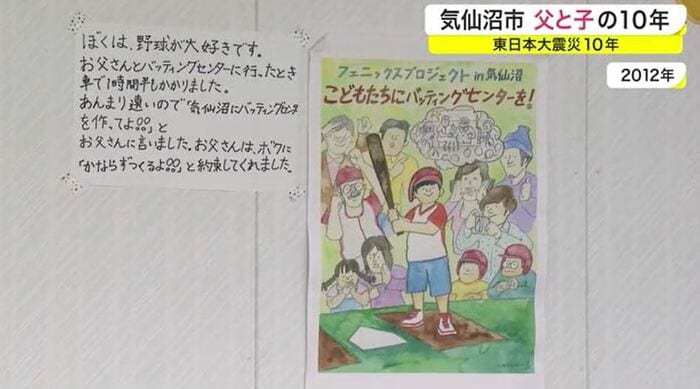 気仙沼市 父と子の10年
東日本大震災10年
2012年
ぼくは、野球が大好きです。
お父さんとバッティングセンターに行ったとき
車で1時間半もかかりました。
あんまり遠いので「気仙沼にバッティングセンタ
を作ってよ!!」と
お父さんに言いました。お父さんは、ボクに
「かならずつくるよ!!」と約束してくれました。
フェニックスプロジェクト in 気仙沼
こどもたちにバッティングセンターを!